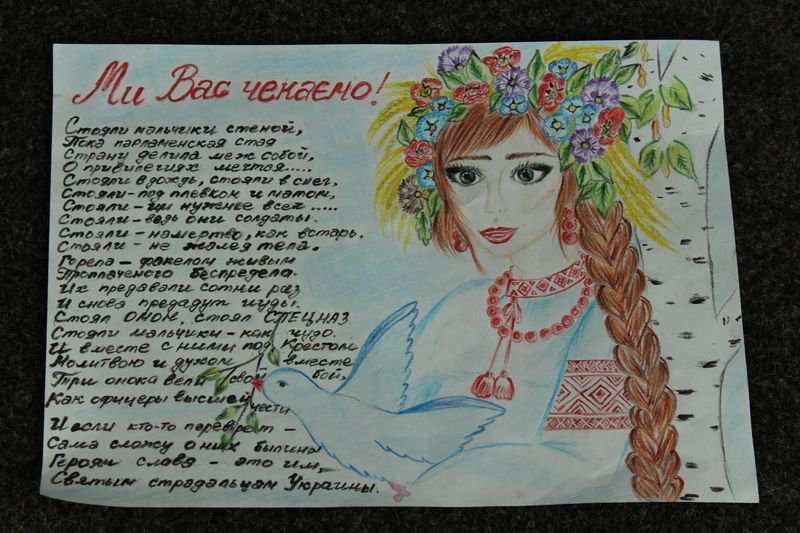 Ми Вас чекаємо!
Стояли мальчики стеной,
Пока парламенская стая
Страну делила меж собой,
О привилегиях мечтая.....
Стояли в дождь, стояли в снег,
Стояли - под плевком и матом,
Стояли - им нужнее всех .....
Стояли - ведь они солдаты.
Стояли - намертво, как встарь.
Стояли - не жалея тела.
Горела - факелом живым
Проплаченого беспредела.
Их предавали сотни раз
И снова предадут иуды.
Стоял ОМОН, стоял СПЕЦНАЗ.
Стояли мальчики - как чудо.
И вместе с ними под Крестом
Молитвою и духом вместе
Три инока вели свой бой,
Как офицеры высшей чести
И если кто-то переврет -
Сама сложу о них былины
Героям слава - это им,
Святым страдальцам Украины.